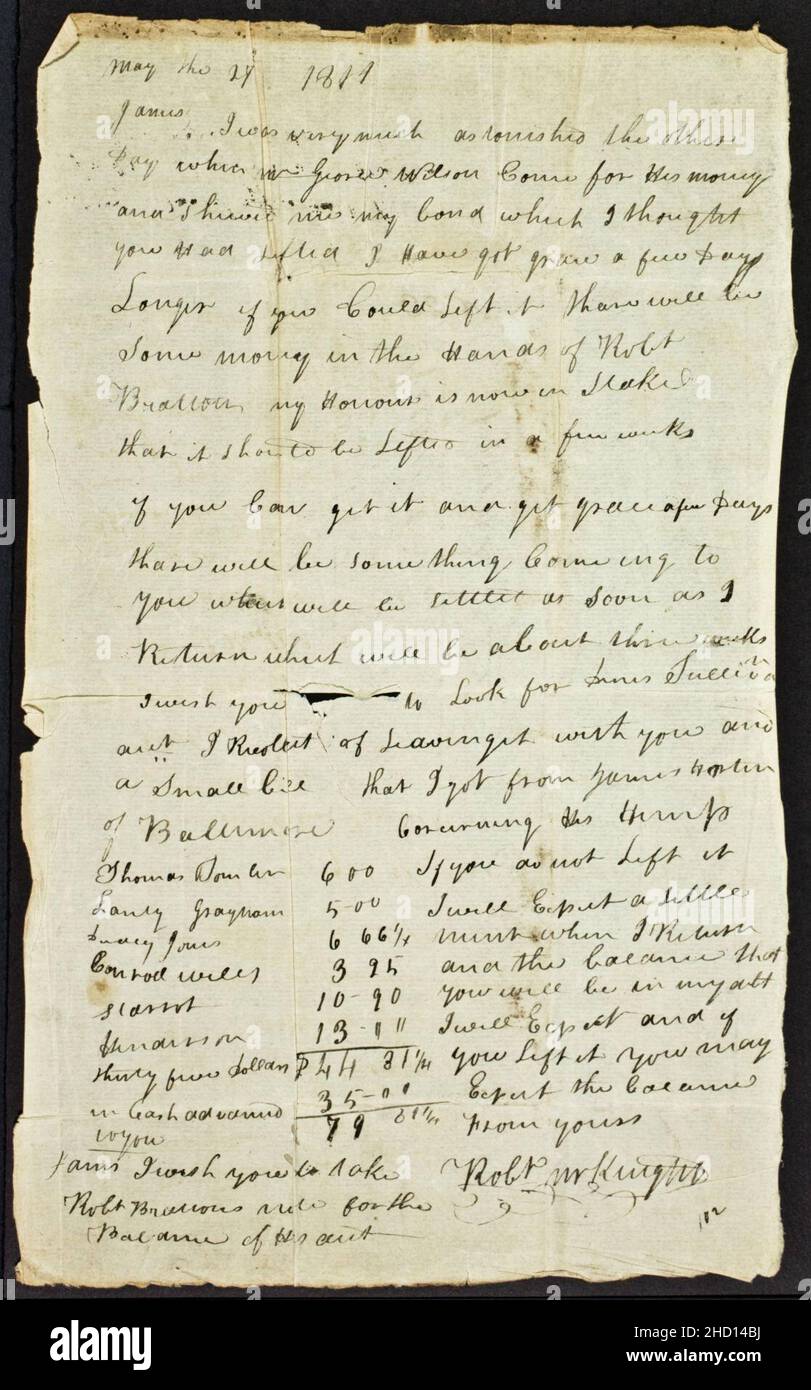 May the 1811
James
I was very much astonished the other
Day when mr George Wilson Come for His money
and Shewed me my bond which I thought
you Had Lifted I Have got grace a few Days
Longer if you Could Lift it thare will be
Some money in the Hands of Robt
Bratton my Honour is now in Stake
that it should be Lifted in a few weeks
if you Can get it and get grace a few Days
thare will be something Comeing to
you will be settlet as soon as I
Return which will be about three weeks
I wish you to Look for
I of Leaveing it with you and
a Small bill that I got from James
of Baltimore Conserning His Hemp
Thomas 6 00 If you do not Lift it
Grayham 5-00 I will Expect a settle
6 66¼ ment when I Return
Conrod 3 95 and the balance that
10-90 you will be in my
Hinderson 13-00 I will Expect and if
thirty five Dollars 44 51¼ you Lift it you may
in Cash advanced 35-00 Expect the balance
to you 79 51¼ From yours
James I wish you to take Robt McKnight
Robt Brattons note for the
Balance of His
alamy
alamy
Image ID: 2HD14BJ
www.alamy.com